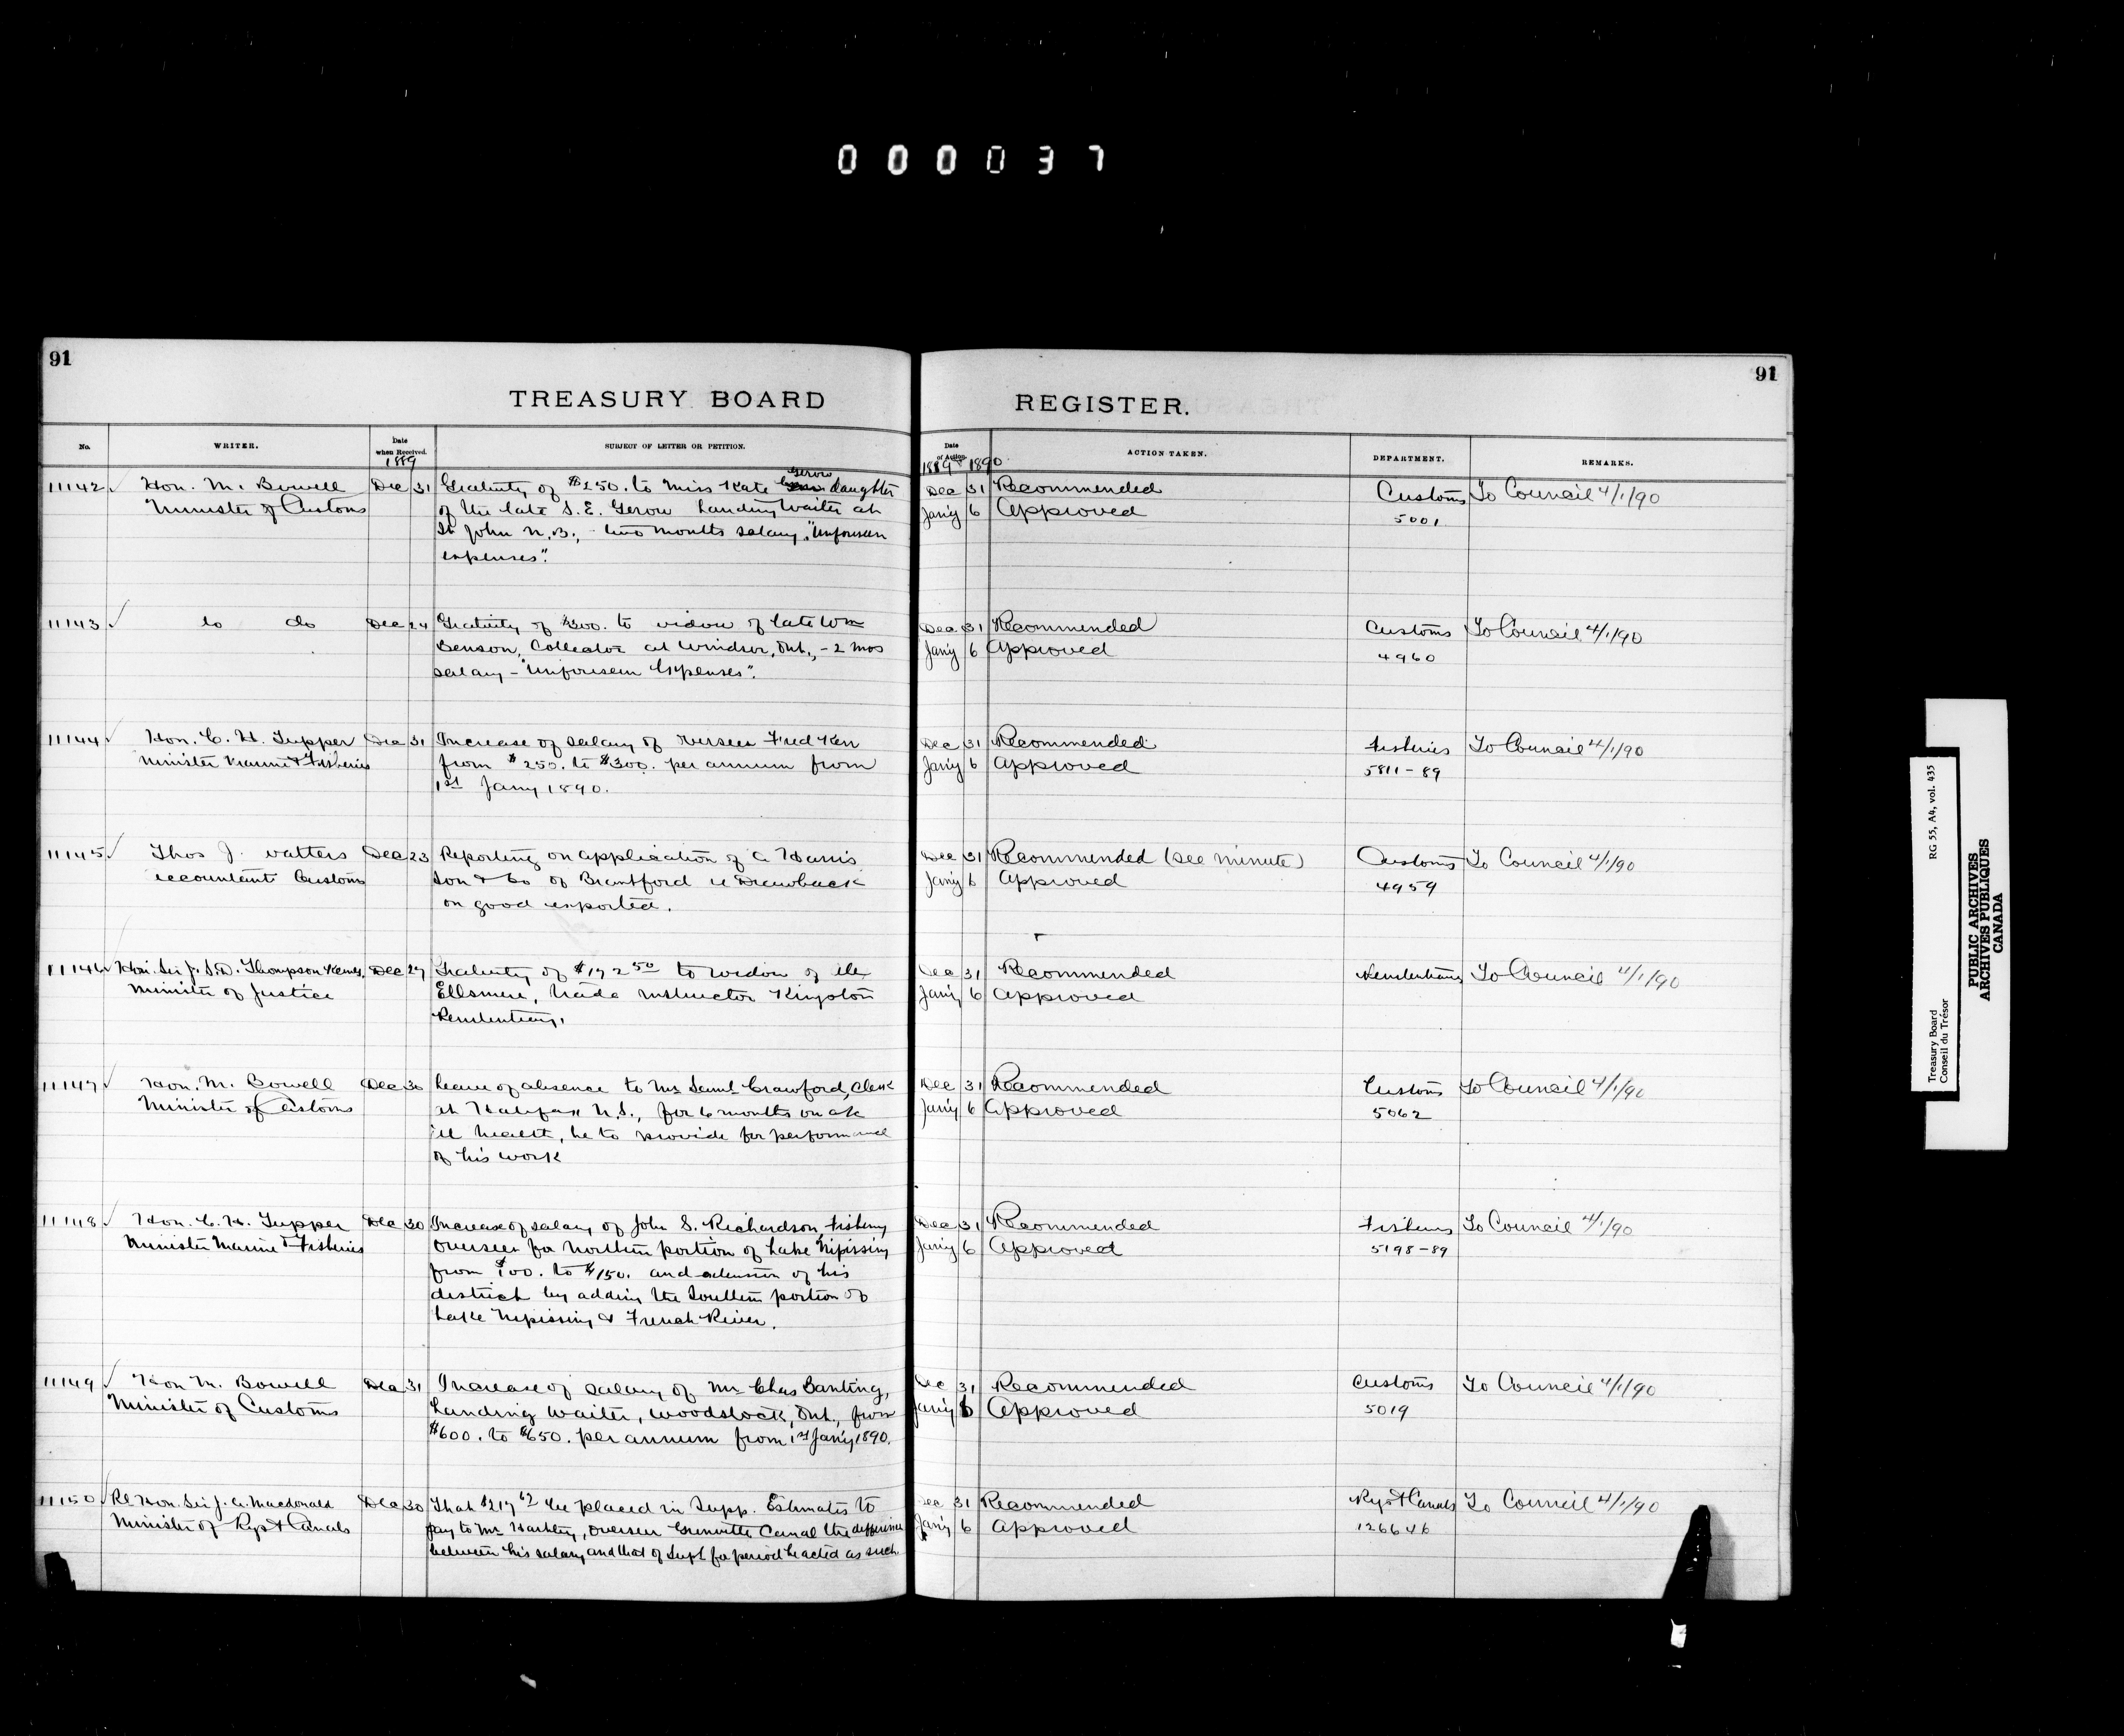 000037
91
91
TREASURY BOARD
REGISTER.
No.
WRITER.
Date when Received.
1889
SUBJECT OF LETTER OR PETITION.
Date of Action
1889 1890
ACTION TAKEN.
DEPARTMENT.
REMARKS.
11142 Hon. M. Bowell Dec 31 Gratuity of $250. to Miss Kate Gerow daughter Dec 31 Recommended Customs To Council 4/1/90
Minister of Customs of the late S. E. Gerow Landing Waiter at Jan'y 6 Approved 5001
St John N.B., - two months salary, "Unforseen
expenses".
11143 do do Dec 24 Gratuity of $300. to widow of late Wm Dec 31 Recommended Customs To Council 4/1/90
Benson, Collector at Windsor, Ont., - 2 mos Jan'y 6 Approved 4960
salary - "Unforeseen Expenses".
11144 Hon. C. H. Tupper Dec 31 Increase of salary of Overseer Fred Kerr Dec 31 Recommended Fisheries To Council 4/1/90
Minister Marine & Fisheries from $250. to $300. per annum from Jan'y 6 Approved 5811-89
1st Jany 1890.
11145 Thos J. Watters Dec 23 Reporting on application of A Harris Dec 31 Recommended (see minute) Customs To Council 4/1/90
accountant Customs Son & Co of Brantford re Drawback Jan'y 6 Approved 4959
on good exported.
11146 Hon. Sir J. S. D. Thompson Dec 27 Gratuity of $172 50 to widow of Dec 31 Recommended Penitentiary To Council 4/1/90
Minister of Justice Ellsmere, Trade Instructor Kingston Jan'y 6 Approved
Penitentiary.
11147 Hon. M. Bowell Dec 30 Leave of absence to Mr Saml Crawford, Clerk Dec 31 Recommended Customs To Council 4/1/90
Minister of Customs at Halifax N.S., for 6 months on a/c Jan'y 6 Approved 5062
ill health, he to provide for performance
of his work
11148 Hon. C. H. Tupper Dec 30 Increase of salary of John S. Richardson Fishery Dec 31 Recommended Fisheries To Council 4/1/90
Minister Marine & Fisheries Overseer for Northern portion of Lake Nipissing Jan'y 6 Approved 5198-89
from $100. to $150. and extension of his
district by adding the Southern portion of
Lake Nipissing & French River.
11149 Hon M. Bowell Dec 31 Increase of salary of Mr Chas Banting, Dec 31 Recommended Customs To Council 4/1/90
Minister of Customs Landing Waiter, Woodstock, Ont., from Jan'y 6 Approved 5019
$600. to $650. per annum from 1st Jan'y 1890.
11150 Rt Hon. Sir J. A. Macdonald Dec 30 That $217 be placed in Supp. Estimates to Dec 31 Recommended Rys & Canals To Council 4/1/90
Minister of Rys & Canals pay to Mr Hartley, Overseer Grenville Canal the difference Jan'y 6 Approved 126646
between his salary and that of Supt for period he acted as such
RG 55, A4, vol. 435
Treasury Board
Conseil du Trésor
PUBLIC ARCHIVES
ARCHIVES PUBLIQUES
CANADA